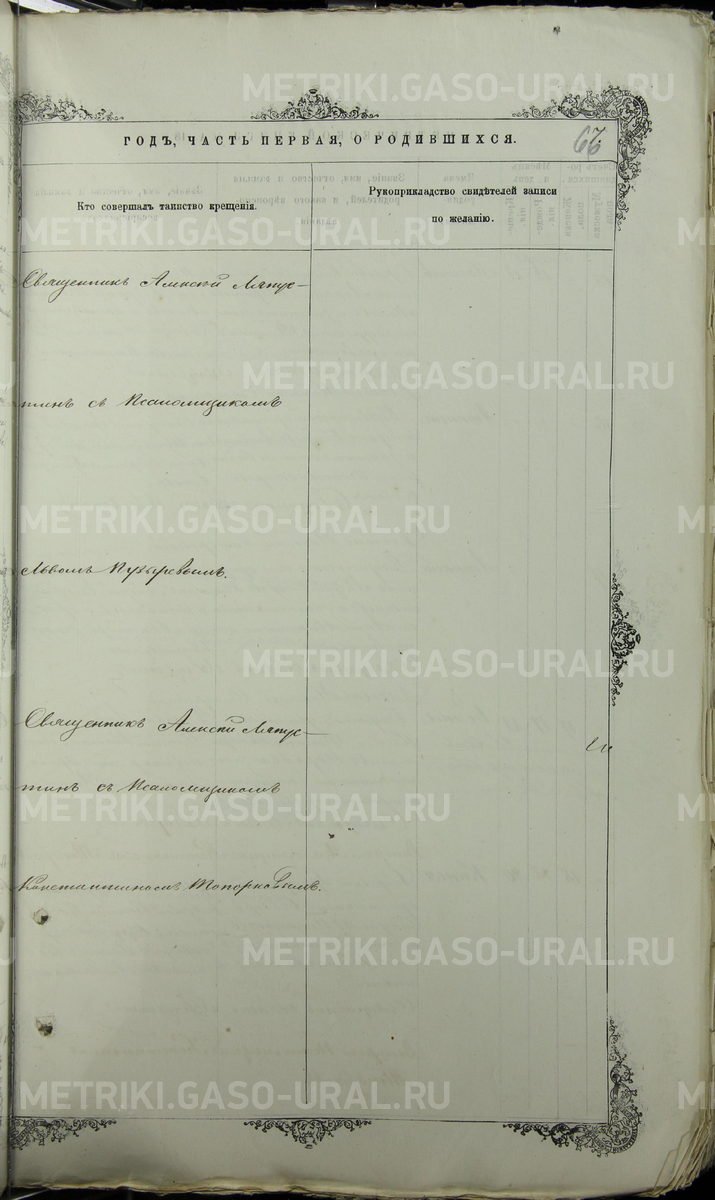 METRIKI.GASO-URAL.RU
ГОДЪ, ЧАСТЬ ПЕРВАЯ, О РОДИВШИХСЯ.
Кто совершалъ таинство крещенія.
Рукоприкладство свидѣтелей записи
по желанію.
Священникъ Алексѣй Ляпус-
METRIKI.GASO-URAL.RU
тинъ съ Псаломщикомъ
METRIKI.GASO-URAL.RU
Львомъ Пузыревымъ.
METRIKI.GASO-URAL.RU
Священникъ Алексѣй Ляпус-
тинъ съ Псаломщикомъ
METRIKI.GASO-URAL.RU
Константиномъ Топорковымъ.
METRIKI.GASO-URAL.RU
METRIKI.GASO-URAL.RU